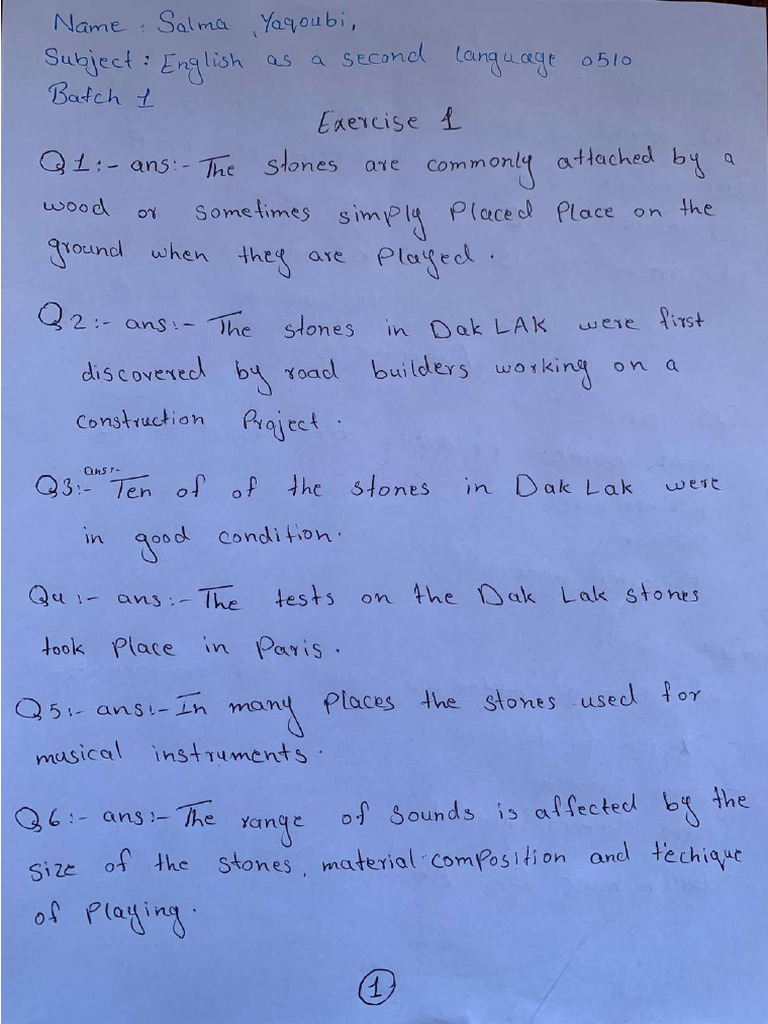 Name : Salma , Yaqoubi,
Subject : English as a second language 0510
Batch 1
Exercise 1
Q1:- ans:- The stones are commonly attached by a
wood or sometimes simply Placed Place on the
ground when they are Played.
Q2:- ans:- The stones in Dak LAK were first
discovered by road builders working on a
construction Project.
ans:-
Q3:- Ten of of the stones in Dak Lak were
in good condition.
Q4:- ans:- The tests on the Dak Lak stones
took Place in Paris.
Q5:- ans:- In many Places the stones used for
musical instruments.
Q6:- ans:- The range of sounds is affected by the
size of the stones, material composition and techique
of Playing.
1